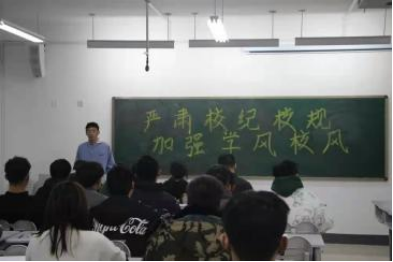 严肃校纪校规
加强学风校风
Coca-Cola